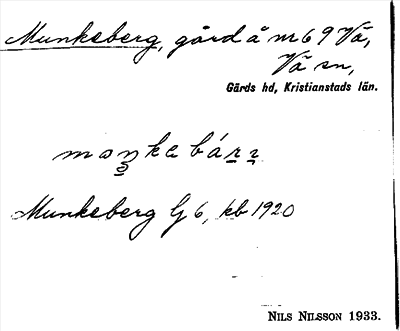 Munkeberg, gård å nr 6 9 Vä,
Vä sn,
Gärds hd, Kristianstads län.
Munkeberg G 6, kb 1920
NILS NILSSON 1933.